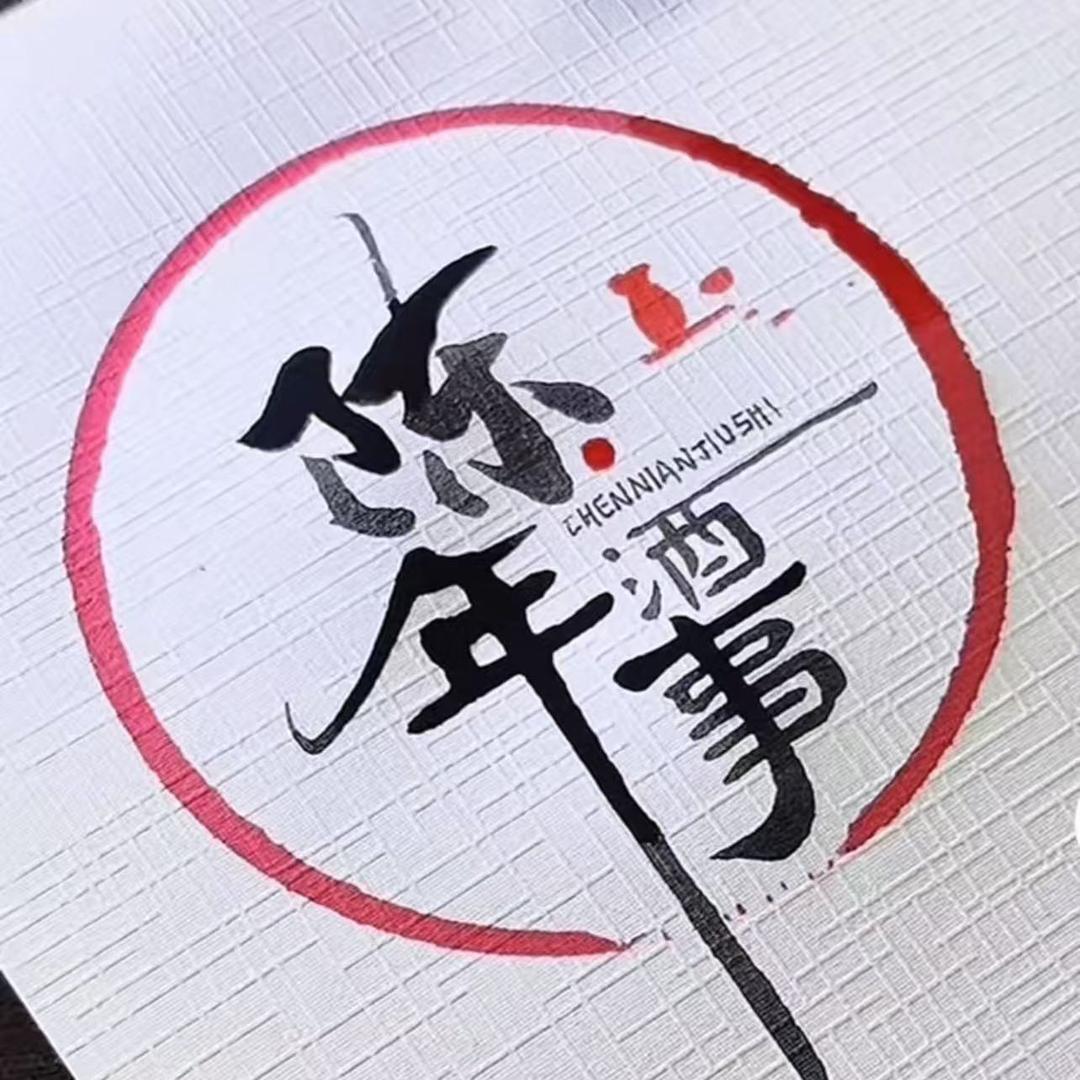 陈年
CHENNIANJIUSHI
酒事